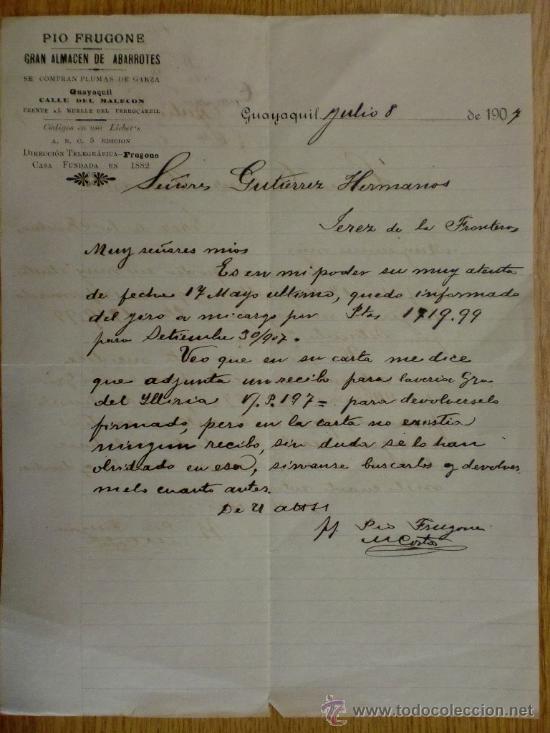 PIO FRUGONE
GRAN ALMACEN DE ABARROTES
SE COMPRAN PLUMAS DE GARZA
Guayaquil
CALLE DEL MALECON
FRENTE AL MUELLE DEL FERROCARRIL
Códigos en uso Lieber's
A. B. C. 5 EDICION
DIRECCIÓN TELEGRÁFICA—Frugone
CASA FUNDADA EN 1882
Guayaquil, Julio 8 de 1907
Señores Gutiérrez Hermanos
Jerez de la Frontera
Muy señores mios
Es en mi poder su muy atenta
de fecha 17 Mayo ultimo, quedo informado
del giro a mi cargo por Ptas 1719.99
para Setiembre 30/907.
Veo que en su carta me dice
que adjunta un recibo para laveria Gra
del Illiria V/P. 197= para devolverselo
firmado, pero en la carta no existia
ningun recibo, sin duda se lo han
olvidado en esa, sirvanse buscarlo y devolver
melo cuanto antes.
De U
pp Pio Frugone
M Costa
todocoleccion.net